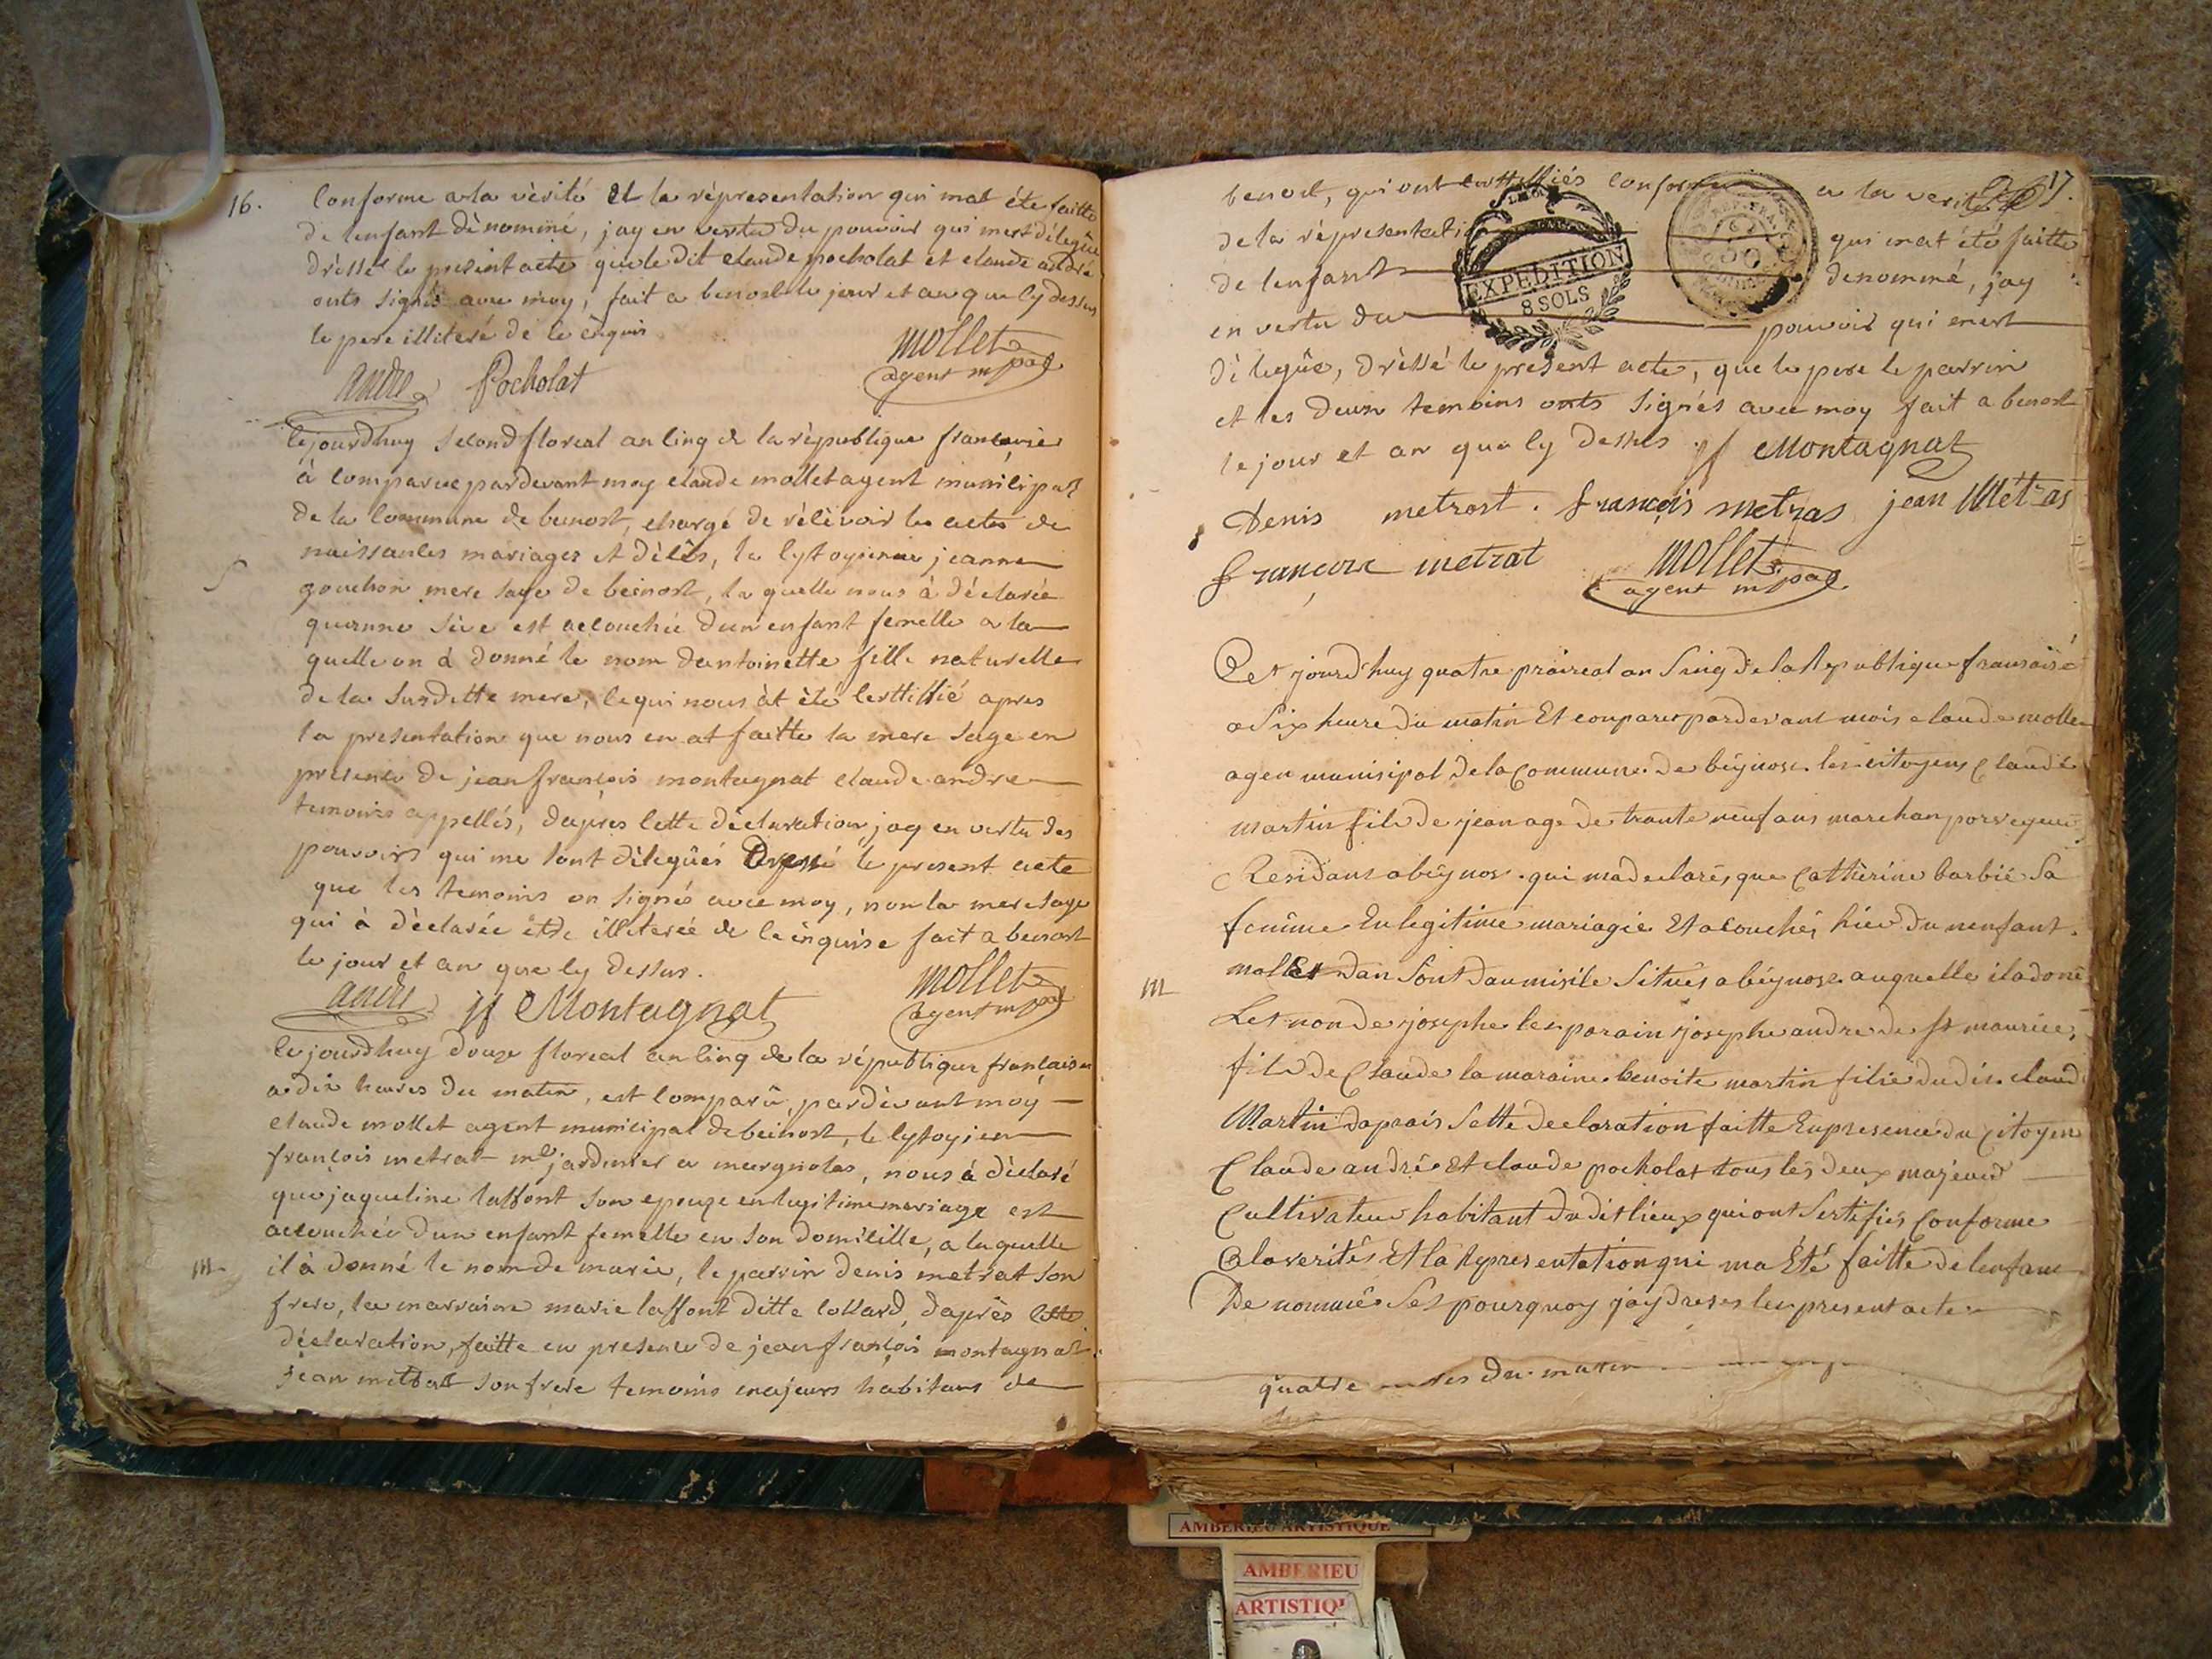 16.
Conforme a la vèrité et la rèpresentation qui mat éte faitte
de lenfant dènommé, jay en vertu du pouvoir qui mest délegûe
drèssé le present acte que le dit claude pocholat et claude andré
onts signés avec moy, fait a benost le jour et an que cy dessus
le pere illiteré de ce enquis
mollet
agent mpal
andre Pocholat
Cejourdhuy second floreal an cinq de la rèpublique francaise
à comparue pardevant moy claude mollet agent municipal
de la commune de benost, chargé de rècèvoir les actes de
naissances mariages et dècès, la cytoyenne jeanne
gouchon mere sage de beinost, la quelle nous à déclarée
quanne sève est accouchée dun enfant femelle a la
quelle on à donné le nom dantoinette fille naturelle
de la susditte mere, ce qui nous àt èté certtiffié apres
la presentation que nous en at faitte la mere sage en
presence de jean françois montagnat claude andre
temoins appellés, daprès cette dèclaration jay en vertu des
pouvoirs qui me sont dèlegûés dressé le present acte
que les temoins on signés avec moy, non la mere sage
qui à dèclarée etre illiterée de ce enquise fait a benost
le jour et an que cy dessus.
mollet
agent mpal
andre jf Montagnat
Cejourdhuy douze floreal an cinq de la république francaise
a dix heures du matin, est comparû, pardèvant moy
claude mollet agent municipal de beinost, le cytoyien
françois metrat md jardinier a margnolas, nous à dèclaré
que jaqueline laffont son epouze en legitime mariage est
accouchée dun enfant femelle en son domicille, a laquelle
m
il à donné le nom de marie, le parrin denis metrat son
frere, la marraine marie laffont ditte collard, daprès cette
déclaration, faitte en presence de jean françois montagnat
jean metrat son frere temoins majeurs habitans de
17.
benost, qui ont certtiffiés conforme a la verité
de la rèpresentation qui mat étè faitte
de lenfant denommé, jay
en vertu du pouvoir qui mest
EXPEDITION
8 SOLS
REP. FRA.
dèlegûe, drèssé le présent acte, que le pere le parrin
et les deux temoins onts signés avec moy fait a benost
le jour et an que cy dessus jf Montagnat
Denis metrast. françois metras jean Métras
françoise metrat mollet
agent mpal
Cet jourd'huy quatre praireal an Sinq de la Republique fransaise
a Six heure du matin Et conparu pardevant mois claude mollet
agen munisipal de la Commune de béynost les citoyens Claude
martin fils de jean age de trante neuf ans marchan
Residans a béynos. qui ma declarés que Cathèrine barbié Sa
femme En legitime mariagie Et acouchés hier du nenfant
m
malle dan Sont daumisile Situés a béynost auquelle il a doné
Let non de josephe le parain josephe andre de st maurice,
fils de Claude la maraine benoite martin filie dudit claud
Martin daprais Sette declaration faitte En presence du Citoyen
Claude andré Et claude pocholat tous les deux majeurs
Cultivateur habitant dudit lieux qui ont Sertifiés Conforme
a la verités Et la Representation qui ma Été faitte de lenfant
De nommés Set pourquoy jay dreses le present acte
quatre du matin
AMBERIEU ARTISTIQUE
AMBERIEU
ARTISTIQ